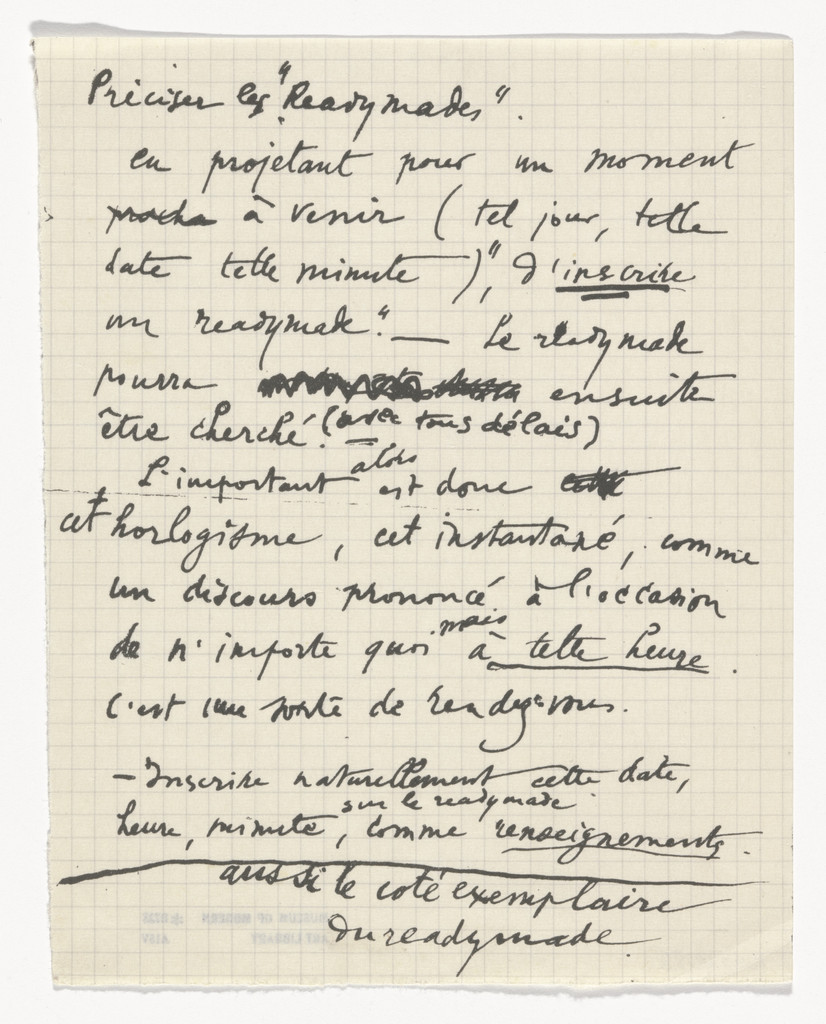 Préciser les "Readymades".
en projetant pour un moment
procha à venir (tel jour, telle
date telle minute)", d'inscrire
un readymade". — Le readymade
pourra ensuite
être cherché. (avec tous délais)
L'important alors est donc
cet horlogisme, cet instantané, comme
un discours prononcé à l'occasion
de n'importe quoi mais à telle heure.
C'est une sorte de rendez-vous.
— Inscrire naturellement cette date,
heure, minute, sur le readymade comme renseignements.
aussi le coté exemplaire
du readymade.